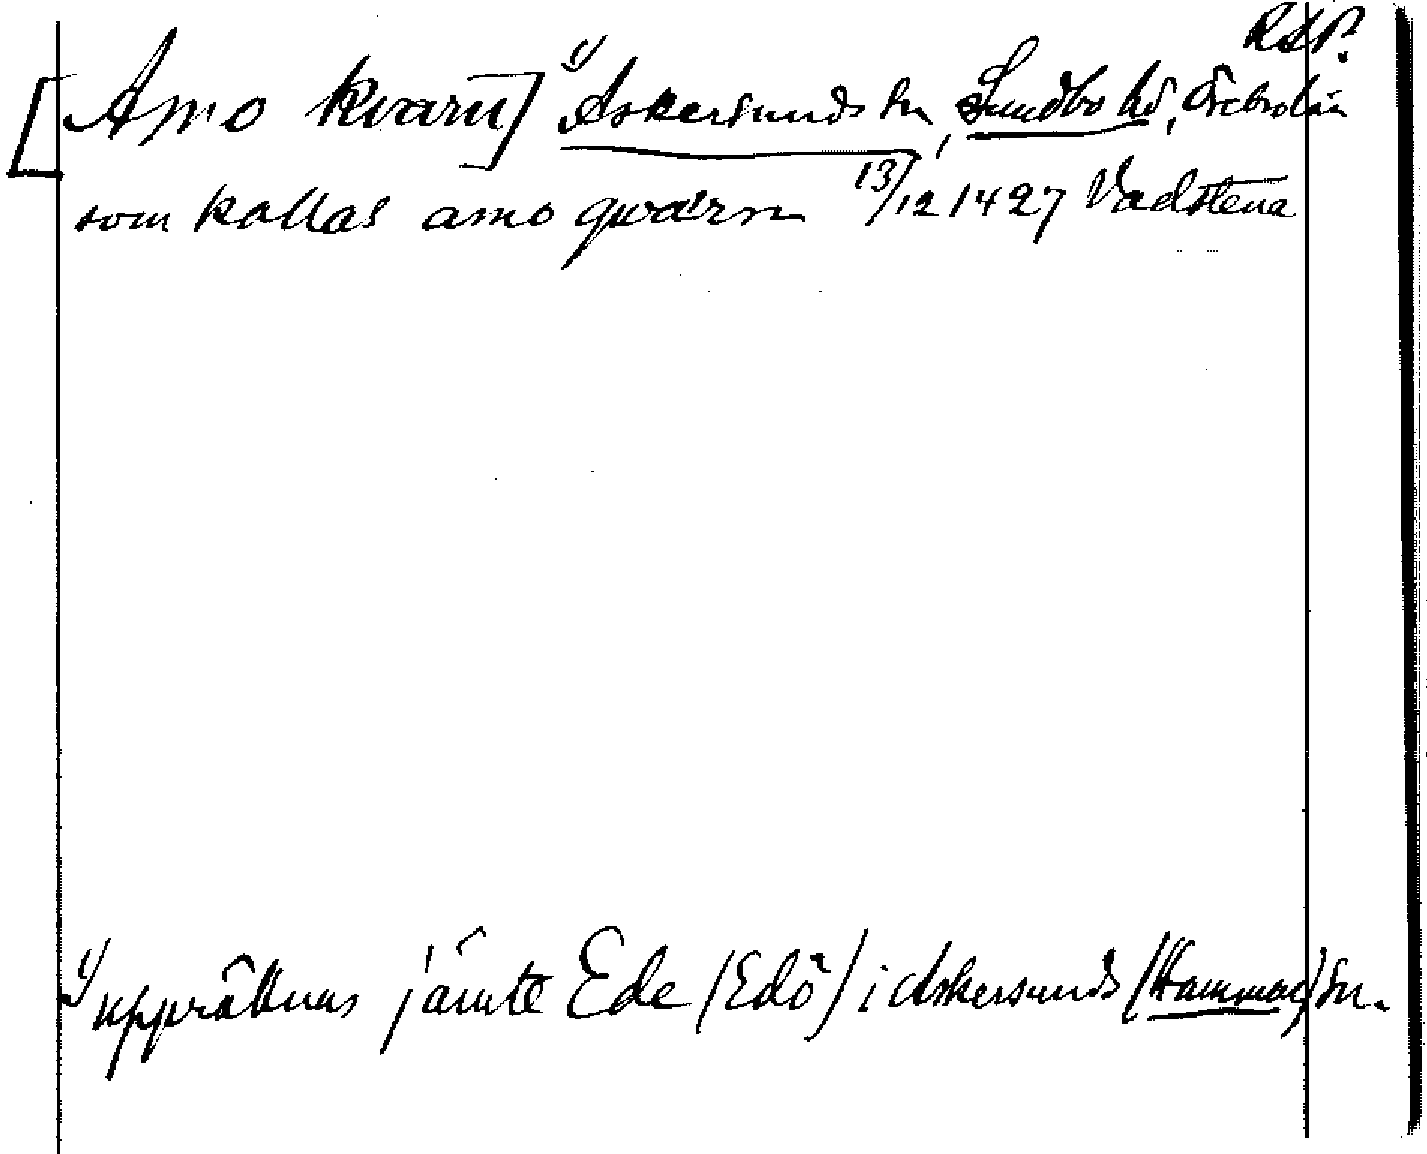 RAP.
[Amo kvarn] 1) Askersunds sn, Sundbo hd, Örebro län
som kallas amo qwærn 13/12 1427 Vadstena
1) uppräknas jämte Ede (Edö) i Askersunds (Hammar) sn.